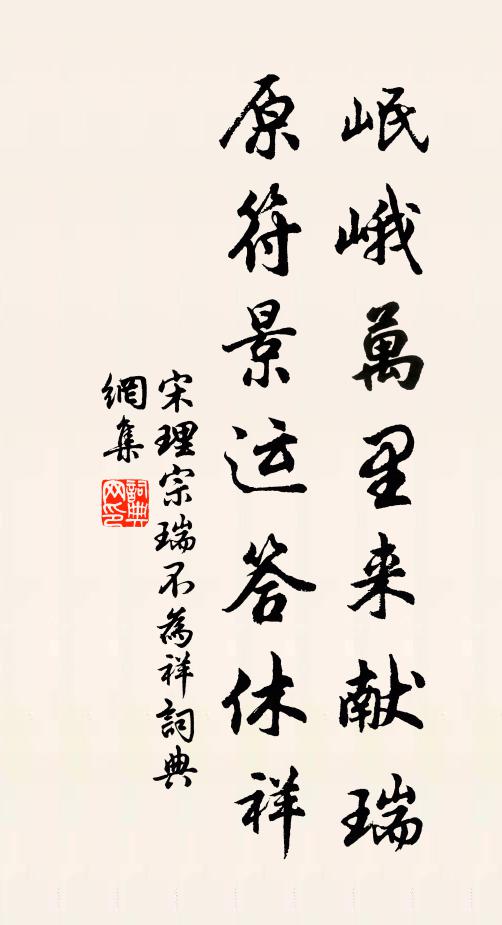 岷峨萬里来献瑞
原符景运答休祥
宋理宗瑞不為祥詞典
網集
詞典
网印